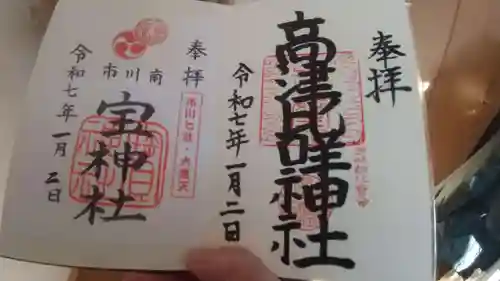 奉拝
高津比咩神社
令和七年一月二日
奉拝
市川七社・大黒天
市川南
宝神社
令和七年一月二日